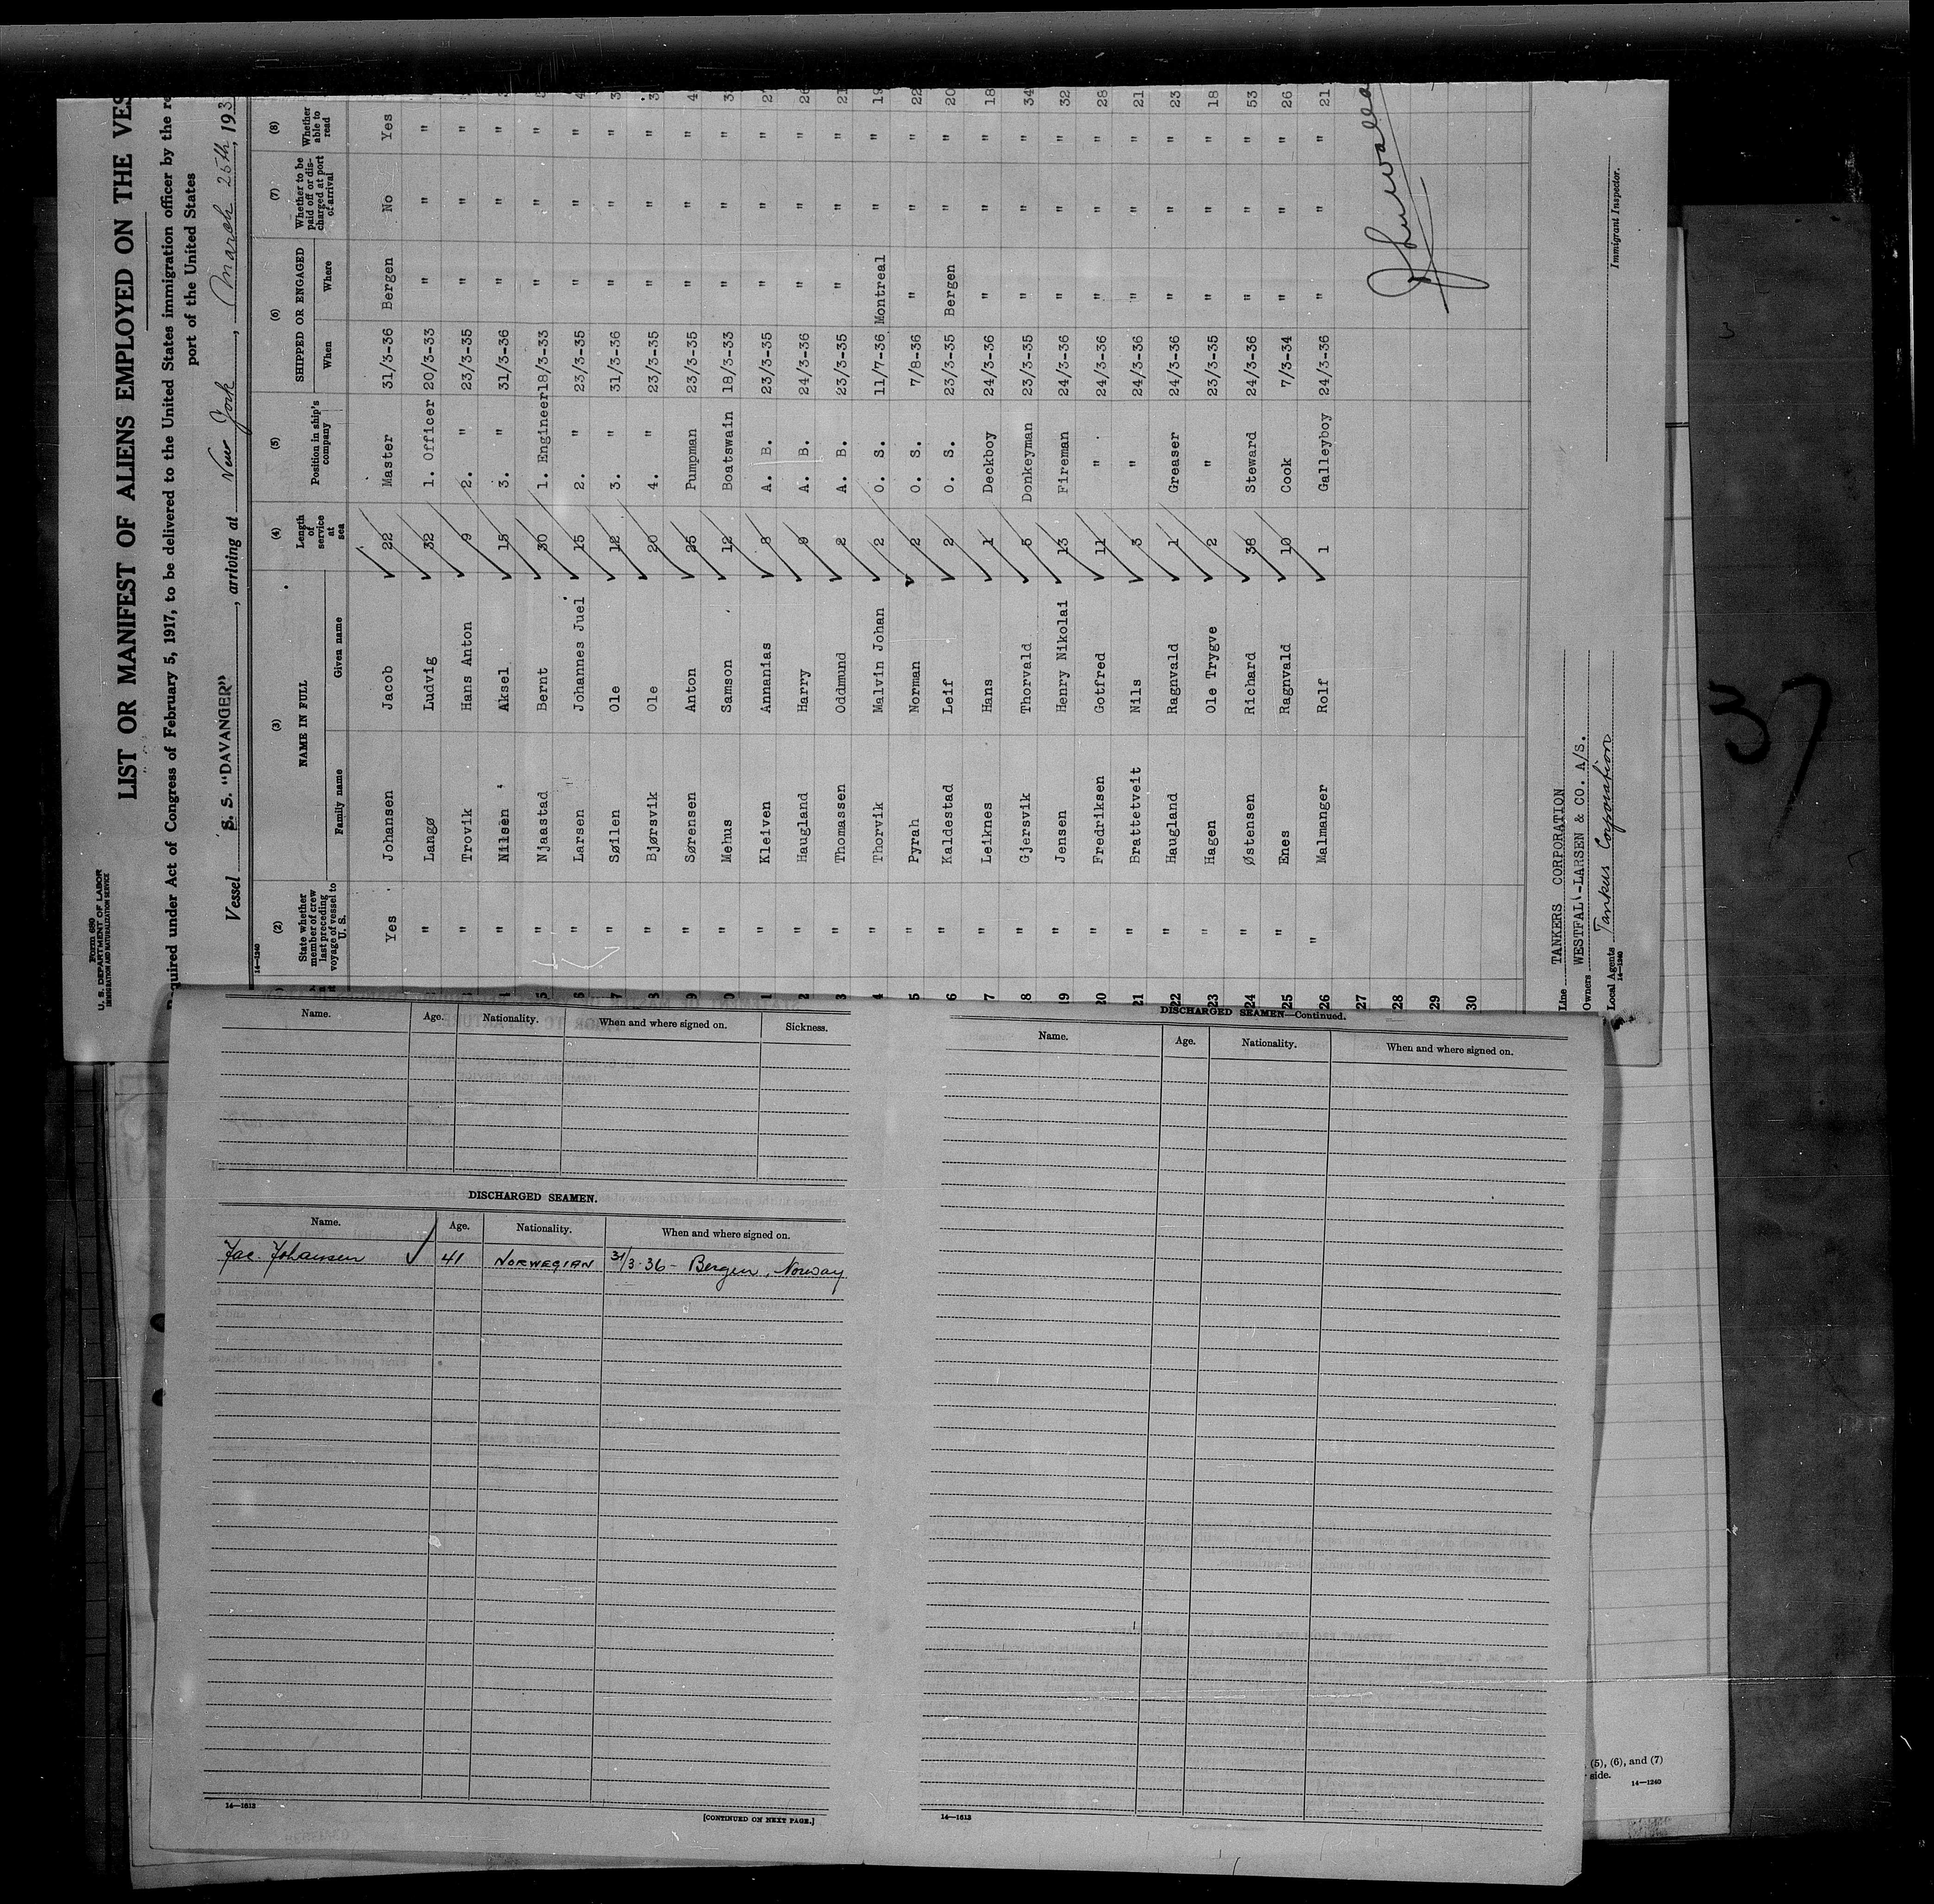 Form 680
U. S. DEPARTMENT OF LABOR
IMMIGRATION AND NATURALIZATION SERVICE
LIST OR MANIFEST OF ALIENS EMPLOYED ON THE VES
Required under Act of Congress of February 5, 1917, to be delivered to the United States immigration officer by the re
port of the United States
Vessel S. S. "DAVANGER", arriving at New York, March 25th, 193
14—1240
(2) (3) (4) (5) (6) (7) (8)
State whether member of crew last preceding voyage of vessel to U. S. NAME IN FULL Length of service at sea Position in ship's company SHIPPED OR ENGAGED Whether to be paid off or discharged at port of arrival Whether able to read
Family name Given name When Where
Yes Johansen Jacob 22 Master 31/3-36 Bergen No Yes
" Langø Ludvig 32 1. Officer 20/3-33 " " "
" Trovik Hans Anton 9 2. " 23/3-35 " " "
" Nilsen Aksel 15 3. " 31/3-36 " " "
5 " Njaastad Bernt 30 1. Engineer 18/3-33 " " "
6 " Larsen Johannes Juel 15 2. " 23/3-35 " " "
7 " Søilen Ole 12 3. " 31/3-36 " " "
8 " Bjørsvik Ole 20 4. " 23/3-35 " " "
9 " Sørensen Anton 25 Pumpman 23/3-35 " " "
0 " Mehus Samson 12 Boatswain 18/3-33 " " "
1 " Kleiven Annanias 8 A. B. 23/3-35 " " " 27
2 " Haugland Harry 9 A. B. 24/3-36 " " " 26
3 " Thomassen Oddmund 2 A. B. 23/3-35 " " " 21
4 " Thorvik Malvin Johan 2 O. S. 11/7-36 Montreal " " 19
5 " Pyrah Norman 2 O. S. 7/8-36 " " " 22
6 " Kaldestad Leif 2 O. S. 23/3-35 Bergen " " 20
7 " Leiknes Hans 1 Deckboy 24/3-36 " " " 18
8 " Gjersvik Thorvald 5 Donkeyman 23/3-35 " " " 34
19 " Jensen Henry Nikolai 13 Fireman 24/3-36 " " " 32
20 " Fredriksen Gotfred 11 " 24/3-36 " " " 28
21 " Brattetveit Nils 3 " 24/3-36 " " " 21
22 " Haugland Ragnvald 1 Greaser 24/3-36 " " " 23
23 " Hagen Ole Trygve 2 " 23/3-35 " " " 18
24 " Østensen Richard 38 Steward 24/3-36 " " " 53
25 " Enes Ragnvald 10 Cook 7/3-34 " " " 26
26 " Malmanger Rolf 1 Galleyboy 24/3-36 " " " 21
27
28
29
30
Line TANKERS CORPORATION
Owners WESTFAL-LARSEN & CO. A/S.
Local Agents Tankers Corporation
14—1240
Immigrant Inspector.
37
Name. Age. Nationality. When and where signed on. Sickness.
DISCHARGED SEAMEN.
Name. Age. Nationality. When and where signed on.
Jac. Johansen 41 NORWEGIAN 31/3-36 - Bergen, Norway
14—1613
[CONTINUED ON NEXT PAGE.]
DISCHARGED SEAMEN—Continued.
Name. Age. Nationality. When and where signed on.
14—1613
(5), (6), and (7)
side.
14—1240